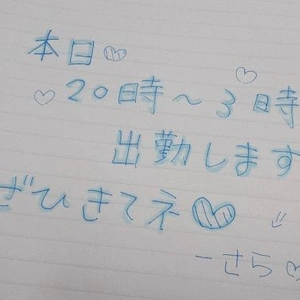 本日♡
♡20時～3時
出勤します
ざひきてネ♡
－さら♡